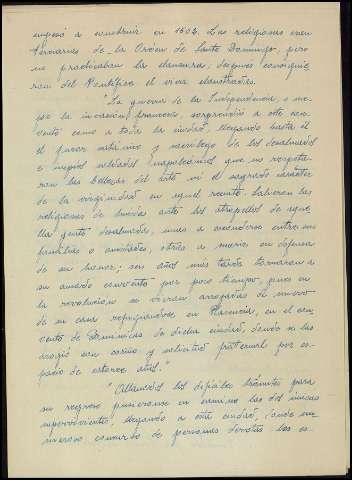 empezó a construir en 1604. Las religiosas eran
Terciarias de la Orden de Santo Domingo, pero
no practicaban la clausura, despues consiguie
ron del Pontífice el vivir claustrales.
"La guerra de la Independencia, o me-
jor la invasión francesa, sorprendió a este con
vento como a toda la ciudad, llegando hasta él
el furor satánico y sacrílego de los desalmados
e impíos soldados napoleónicos que no respeta-
ron las bellezas del arte ni el sagrado carácter
de la virginidad en aquel recinto. Salieron las
religiosas de huida ante los atropellos de aque
lla gente desalmada, unas a esconderse entre sus
familias o amistades, otras a morir en defensa
de su honor; seis años más tarde tornaron a
su amado convento por poco tiempo, pues en
la revolución se vieron arrojadas de nuevo
de su casa refugiándose en Plasencia, en el con-
vento de Dominicas de dicha ciudad, donde se las
acogió con cariño y solicitud fraternal por es-
pacio de catorce años."
"Allanados los difíciles trámites para
su regreso pusiéronse en camino las dos únicas
supervivientes, llegando a esta ciudad, donde nu-
meroso concurso de personas devotas las es-